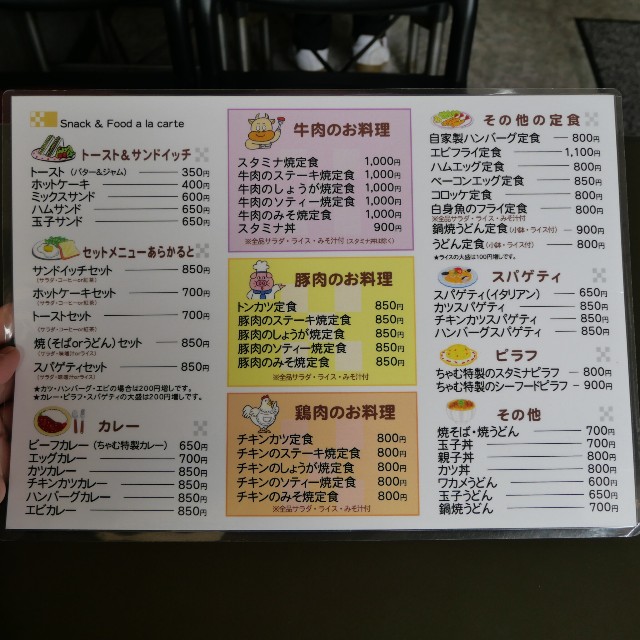 Snack & Food a la carte
トースト&サンドイッチ
トースト (バター&ジャム) 350円
ホットケーキ 400円
ミックスサンド 600円
ハムサンド 650円
玉子サンド 650円
セットメニューあらかると
サンドイッチセット 850円
(サラダ・コーヒーor紅茶)
ホットケーキセット 700円
(サラダ・コーヒーor紅茶)
トーストセット 700円
(サラダ・コーヒーor紅茶)
焼(そばorうどん)セット 850円
(サラダ・味噌汁orライス)
スパゲティセット 850円
(サラダ・味噌汁orライス)
★カツ・ハンバーグ・エビの場合は200円増しです。
★カレー・ピラフ・スパゲティの大盛は200円増しです。
カレー
ビーフカレー (ちゃむ特製カレー) 650円
エッグカレー 700円
カツカレー 850円
チキンカツカレー 850円
ハンバーグカレー 850円
エビカレー 850円
牛肉のお料理
スタミナ焼定食 1,000円
牛肉のステーキ焼定食 1,000円
牛肉のしょうが焼定食 1,000円
牛肉のソティー焼定食 1,000円
牛肉のみそ焼定食 1,000円
スタミナ丼 900円
※全品サラダ・ライス・みそ汁付 (スタミナ丼は除く)
豚肉のお料理
トンカツ定食 850円
豚肉のステーキ焼定食 850円
豚肉のしょうが焼定食 850円
豚肉のソティー焼定食 850円
豚肉のみそ焼定食 850円
※全品サラダ・ライス・みそ汁付
鶏肉のお料理
チキンカツ定食 800円
チキンのステーキ焼定食 800円
チキンのしょうが焼定食 800円
チキンのソティー焼定食 800円
チキンのみそ焼定食 800円
※全品サラダ・ライス・みそ汁付
その他の定食
自家製ハンバーグ定食 800円
エビフライ定食 1,100円
ハムエッグ定食 800円
ベーコンエッグ定食 850円
コロッケ定食 800円
白身魚のフライ定食 800円
※全品サラダ・ライス・みそ汁付
鍋焼うどん定食(小鉢・ライス付) 900円
うどん定食(小鉢・ライス付) 800円
★ライスの大盛は100円増しです。
スパゲティ
スパゲティ(イタリアン) 650円
カツスパゲティ 850円
チキンカツスパゲティ 850円
ハンバーグスパゲティ 850円
ピラフ
ちゃむ特製のスタミナピラフ 800円
ちゃむ特製のシーフードピラフ 900円
その他
焼そば・焼うどん 700円
玉子丼 700円
親子丼 800円
カツ丼 800円
ワカメうどん 600円
玉子うどん 650円
鍋焼うどん 700円